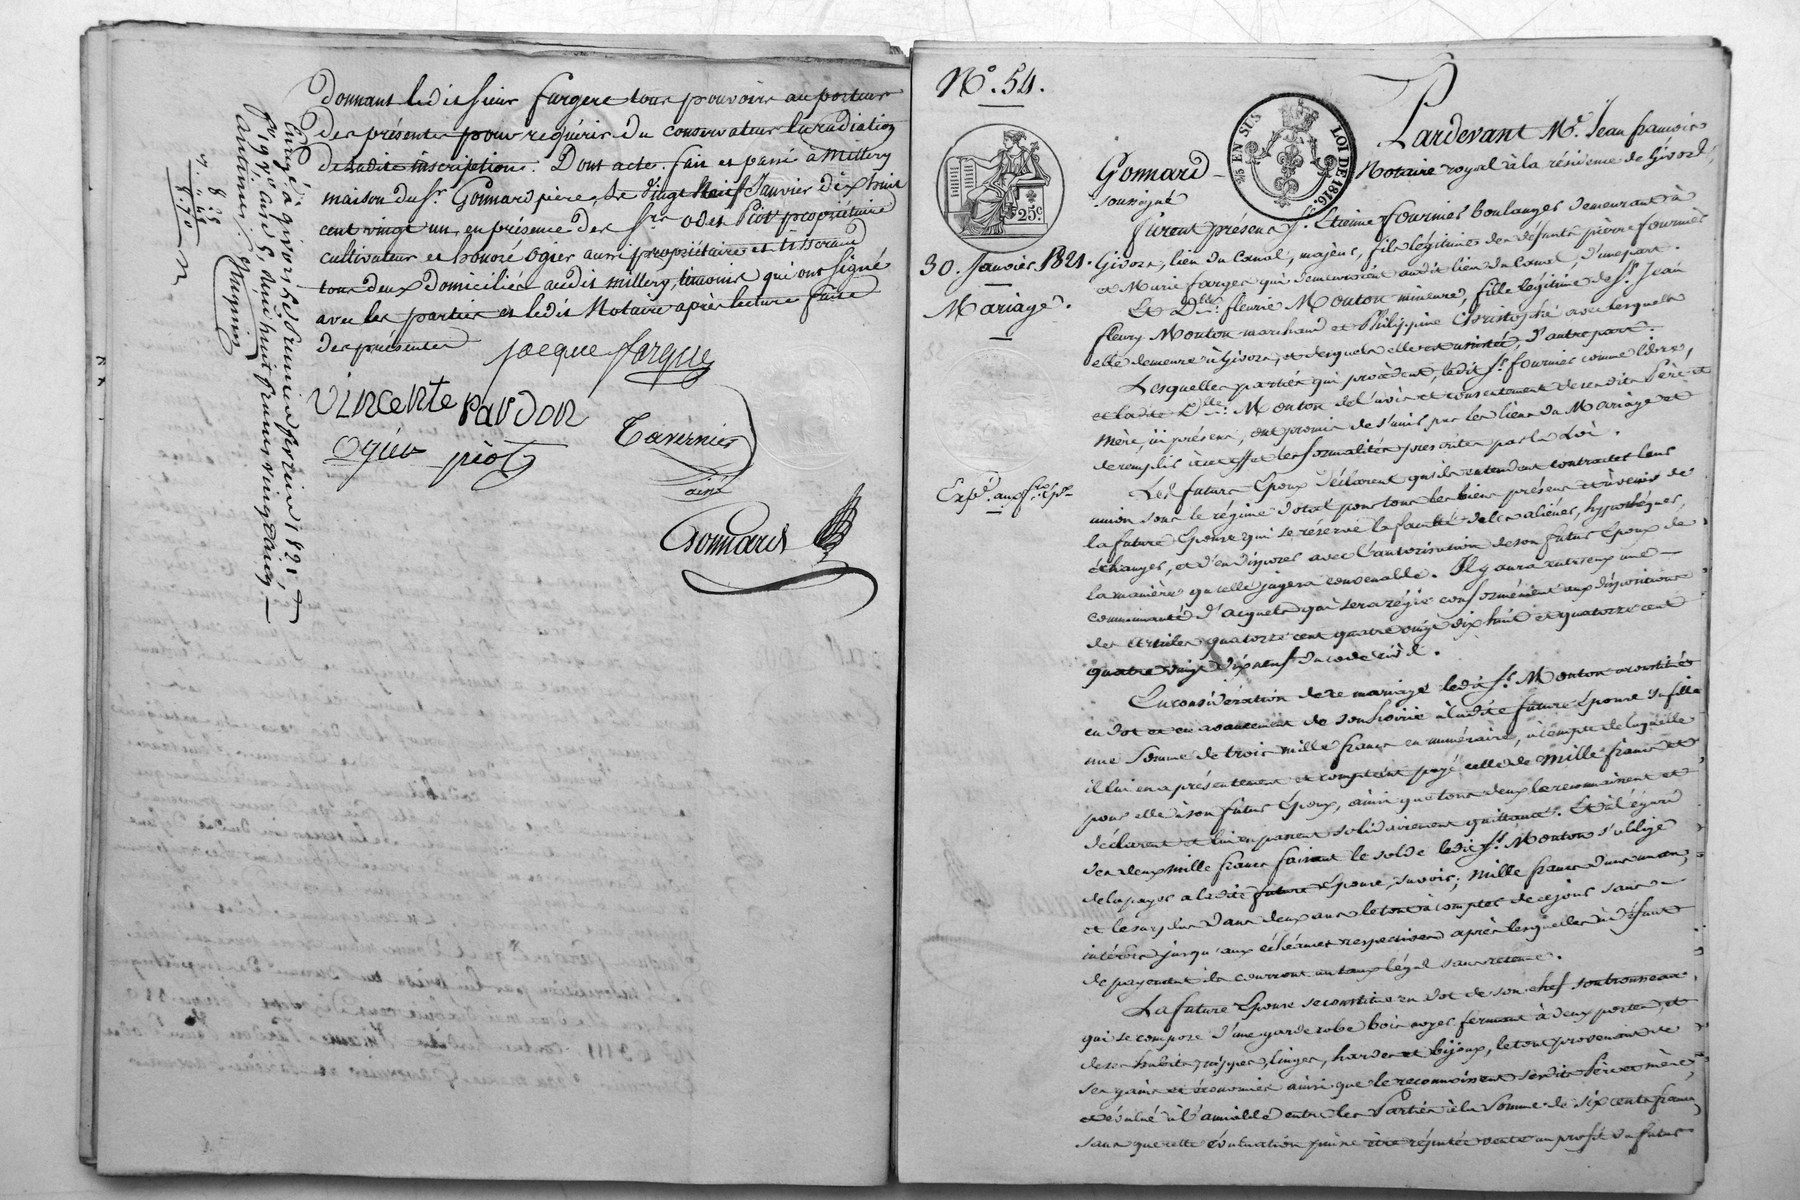 donnant ledit sieur fargere tous pouvoirs au porteur
des présentes pour requérir du conservateur la radiation
de ladite inscription. Dont acte. fait et passé à Millery
maison du Sr. Gonnard père, le vingt neuf Janvier dix huit
cent vingt un, en présence des Srs. odet Piot propriétaire
cultivateur et honoré Ogier aussi propriétaire et tisserand
tous deux domiciliés audit millery, témoins qui ont signé
avec les parties et ledit Notaire après lecture faite
des présentes
jacque farque
vincente Pardon
Ogier piot
Tavernier
ainé
Gonnard
Enregé à givors le premier février 1821
fo 199 vo, case 5, deux huit francs vingt cinq
centimes
8. 25
. 45
8. 70
No. 54.
25c
25 EN SUS
LOI DE 1816.
30. Janvier 1821.
Mariage.
Expé. aux frs. Epx
Pardevant Me. Jean françois
Gonnard Notaire royal à la résidence de Givors,
soussigné
furent présens Sr. Etienne fournier boulanger demeurant à
Givors, lieu du Canal, majeur, fils légitime des défunts pierre fournier
et Marie farges qui demeuroient audit lieu du Canal, d'une part.
Et Dlle. fleurie Mouton mineure, fille légitime de Sr. Jean
fleury Mouton marchand et Philippine Christophe avec lesquels
elle demeure à Givors, et desquels elle est assistée, d'autre part.
Lesquelles parties qui procèdent, ledit Sr. fournier comme libre,
et ladite Dlle. Mouton de l'avis et consentement de sesdits Père et
Mère, ici présens, ont promis de s'unir par les liens du Mariage et
de remplir à cet effet les formalités prescrites par la Loi.
Les futurs Epoux déclarent qu'ils entendent contracter leur
union sous le régime dotal pour tous les biens présens et à venir de
la future Epouse qui se réserve la faculté de les aliéner, hypothéquer,
échanger, et d'en disposer avec l'autorisation de son futur Epoux de
la manière qu'elle jugera convenable. Il y aura entr'eux une
communauté d'acquets qui sera régie conformément aux dispositions
des articles quatorze cent quatre vingt dix huit et quatorze cent
quatre vingt dix neuf du code civil.
En considération de ce mariage ledit Sr. Mouton a constitué
en dot et en avancement de son hoirie à ladite future épouse sa fille
une Somme de trois mille francs en numéraire, à compte de laquelle
il lui en a présentement et comptant payé celle de mille francs et
pour elle à son futur Epoux, ainsi que tous deux le reconnoissent et
déclarent et lui en passent solidairement quittance. Et à l'égard
des deux mille francs faisant le solde ledit Sr. Mouton s'oblige
de les payer à ladite future épouse, savoir; mille francs dans un an,
et le surplus dans deux ans le tout à compter de ce jour sans
intérêts jusqu'aux échéances respectives après lesquelles à défaut
de payement ils courront au taux légal sans retenue.
La future Epouse se constitue en dot de son chef son trousseau
qui se compose d'une garde robe bois noyer fermant à deux portes, et
de ses habits, nippes, linges, hardes et bijoux, le tout provenant de
ses gains et économies ainsi que le reconnoissent sesdits Père et mère,
et évalué à l'amiable entre les Parties à la Somme de six cents francs
sans que cette évaluation puisse être réputée vente au profit du futur